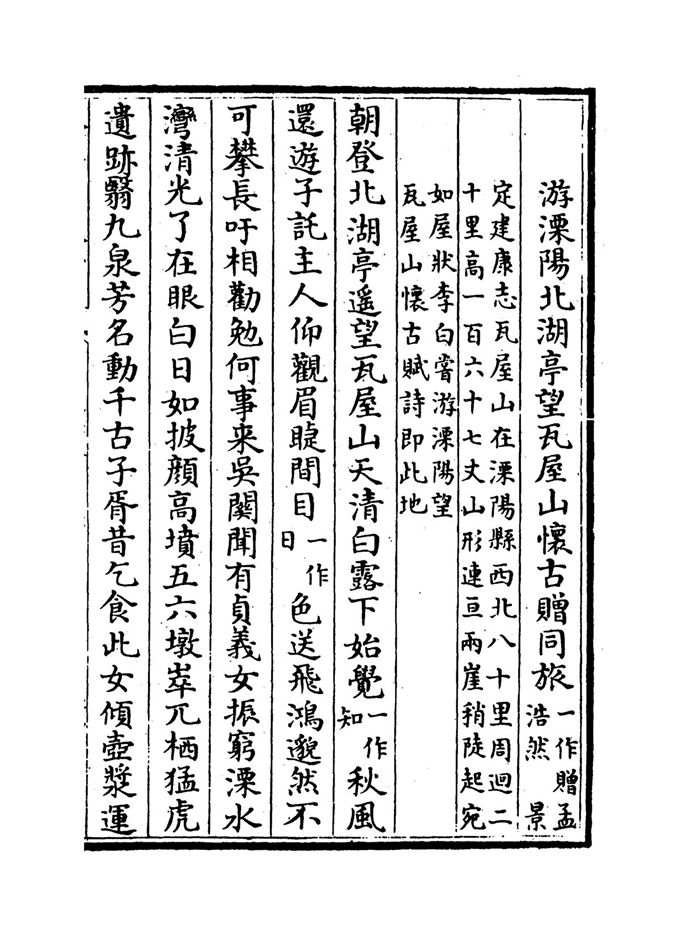 游溧陽北湖亭望瓦屋山懷古贈同旅一作贈孟浩然 景
定建康志瓦屋山在溧陽縣西北八十里周迴二
十里高一百六十七丈山形連亘兩崖稍陡起宛
如屋狀李白嘗游溧陽望
瓦屋山懷古賦詩即此地
朝登北湖亭遥望瓦屋山天清白露下始覺一作知秋風
還遊子託主人仰觀眉睫間目一作日色送飛鴻邈然不
可攀長吁相勸勉何事来吳關聞有貞義女振窮溧水
灣清光了在眼白日如披顔高墳五六墩崒兀栖猛虎
遺跡翳九泉芳名動千古子胥昔乞食此女傾壺漿運